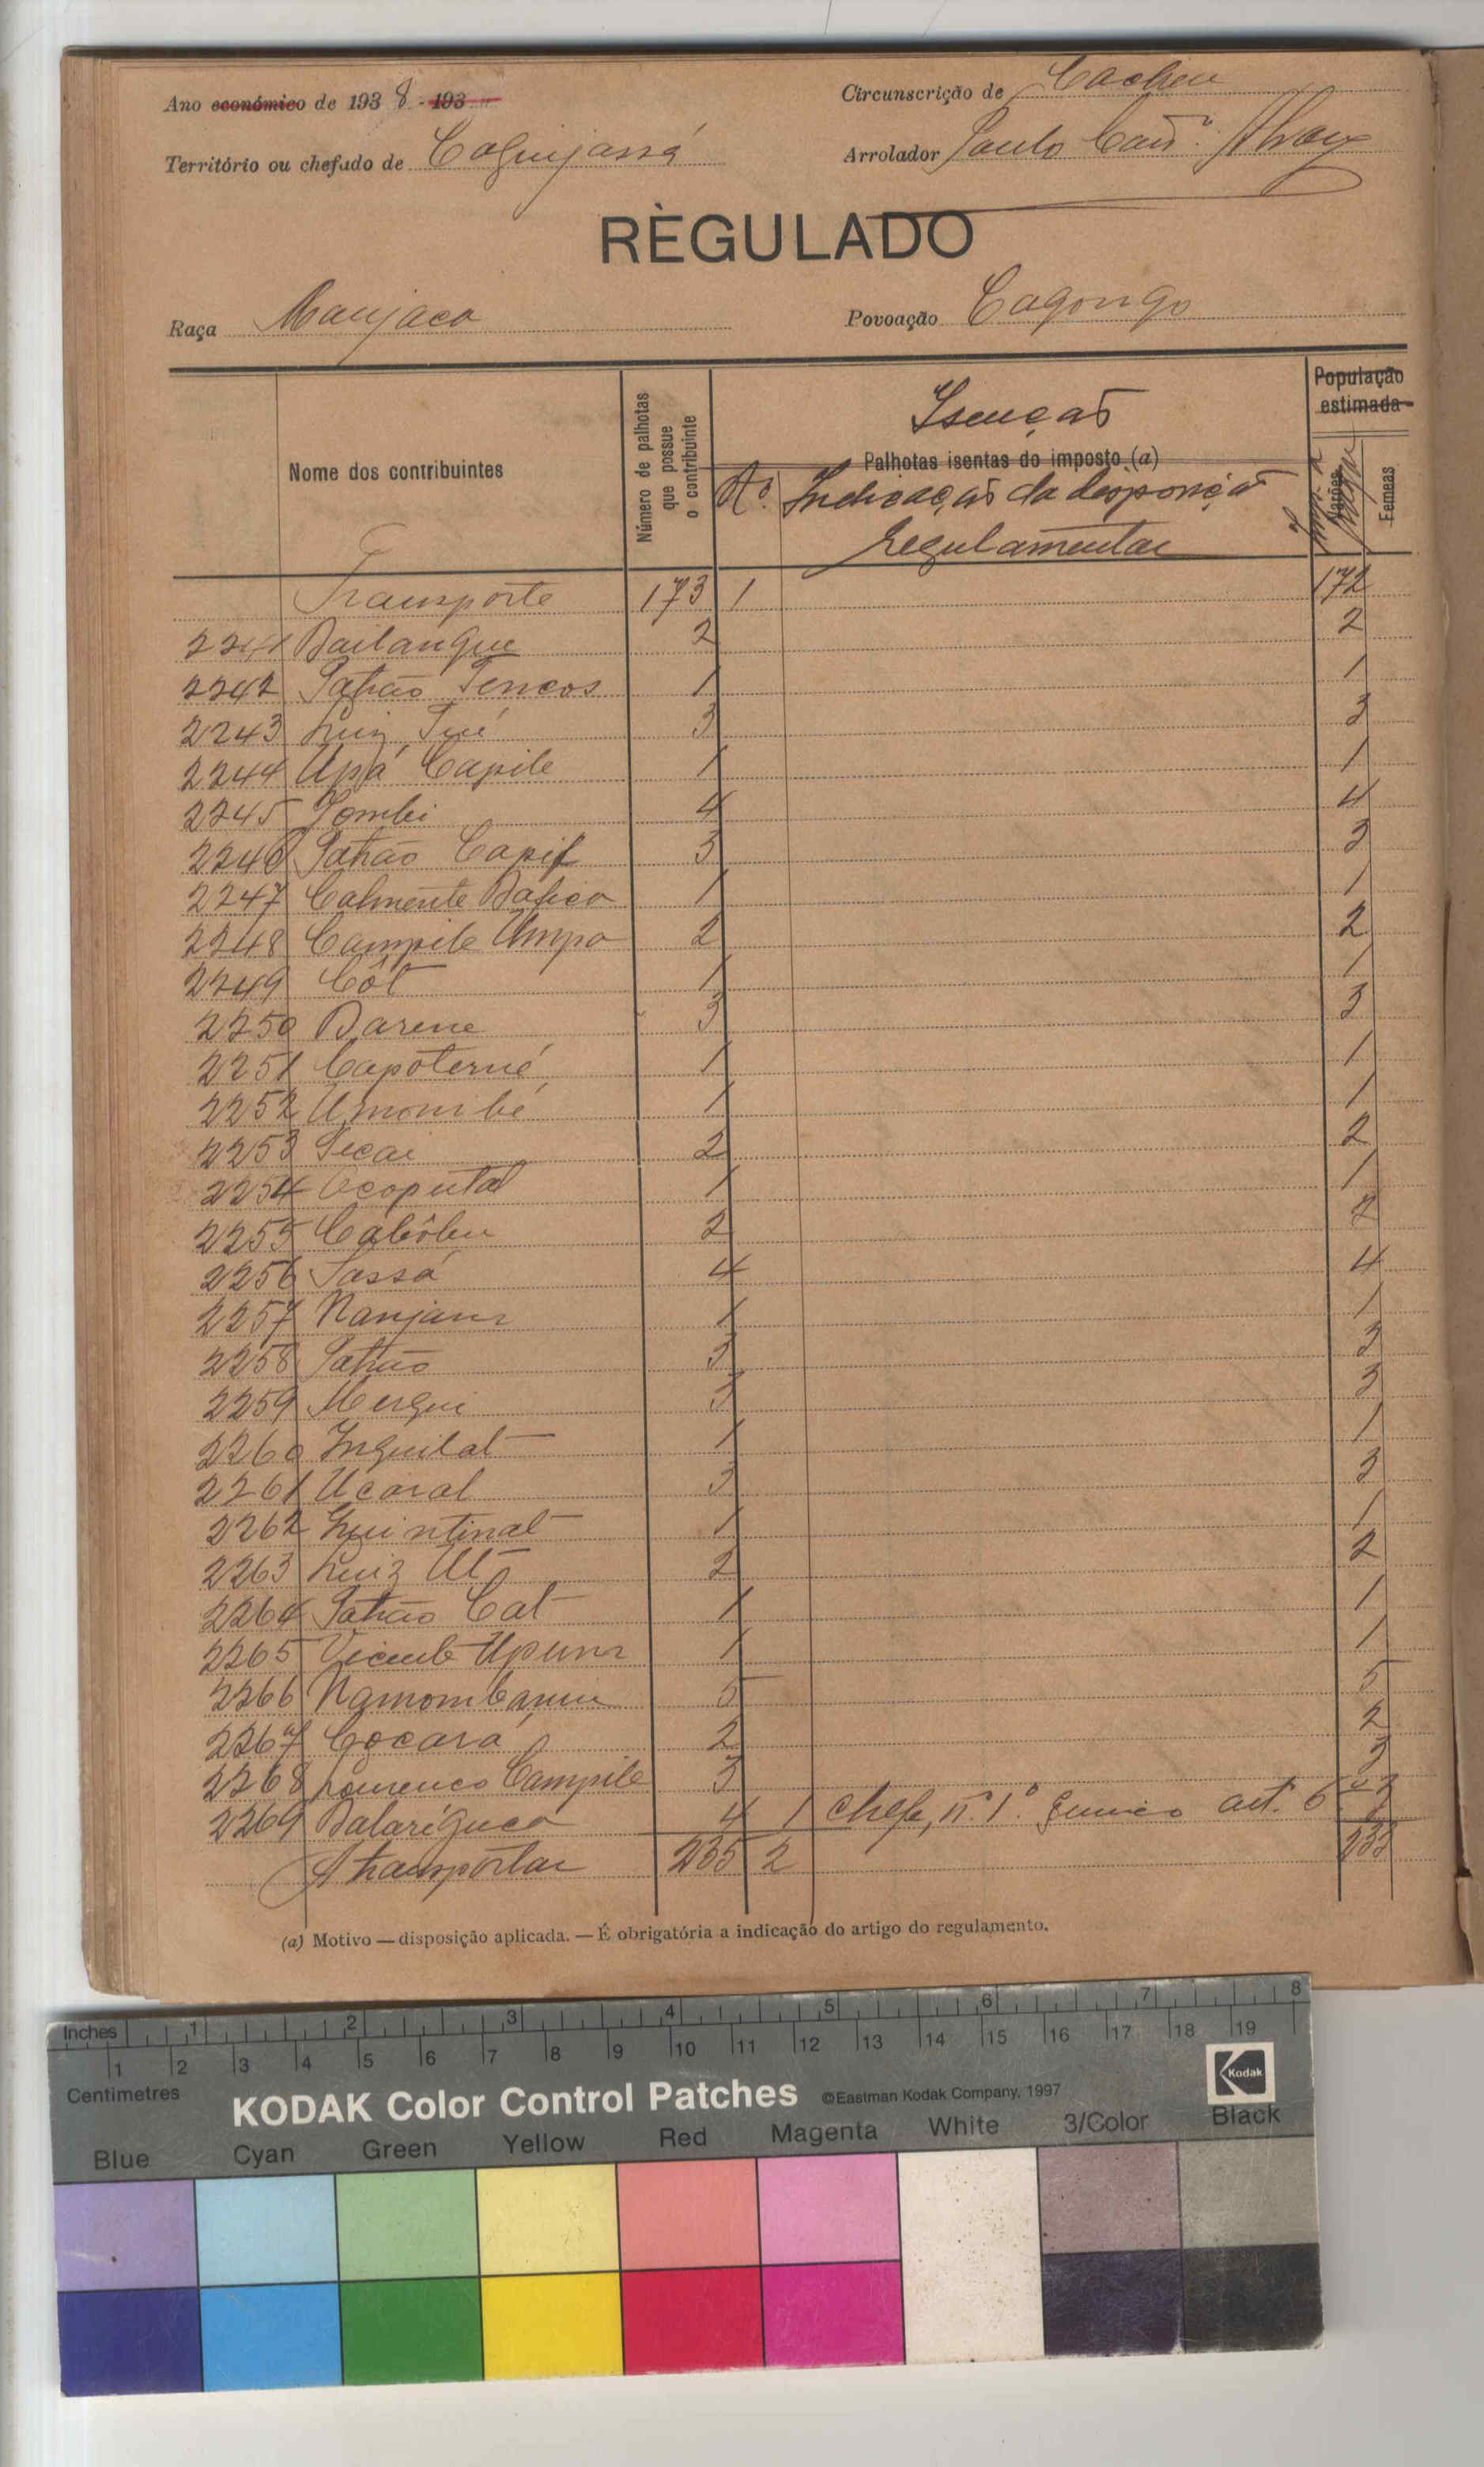 Ano económico de 1938-193
Circunscrição de Cacheu
Território ou chefado de
Arrolador Paulo
RÈGULADO
Raça Manjaca
Povoação Cagongo
Nome dos contribuintes
Número de palhotas que possue o contribuinte
Isenção
Palhotas isentas do imposto (a)
Nº Indicação da desposição regulamentar
População estimada
Varões
Femeas
Transporte 173 1 172
2241 Bailangue 2 2
2242 Patrão Tencos 1 1
2243 Luiz 3 3
2244 Upá Capile 1 1
2245 Gombi 4 4
2246 Patrão 3 3
2247 1 1
2248 Campile Umpa 2 2
2249 Côt 1 1
2250 Barene 3 3
2251 Capoterné 1 1
2252 Umombé 1 1
2253 2 2
2254 1 1
2255 Cabôbu 2 2
2256 Sassá 4 4
2257 1 1
2258 Patrão 3 3
2259 3 3
2260 Inguilal 1 1
2261 Ucaral 3 3
2262 Quintinal 1 1
2263 Luiz 2 2
2264 Patrão Cat 1 1
2265 Vicente 1 1
2266 5 5
2267 Cocará 2 2
2268 Lourenco Campile 3 3
2269 4 1 Chefe, nº 1º art. 6º 3
A transportar 235 2 233
(a) Motivo — disposição aplicada. — É obrigatória a indicação do artigo do regulamento.
Inches 1 2 3 4 5 6 7 8
1 2 3 4 5 6 7 8 9 10 11 12 13 14 15 16 17 18 19
Centimetres
KODAK Color Control Patches ©Eastman Kodak Company, 1997 Kodak
Blue Cyan Green Yellow Red Magenta White 3/Color Black